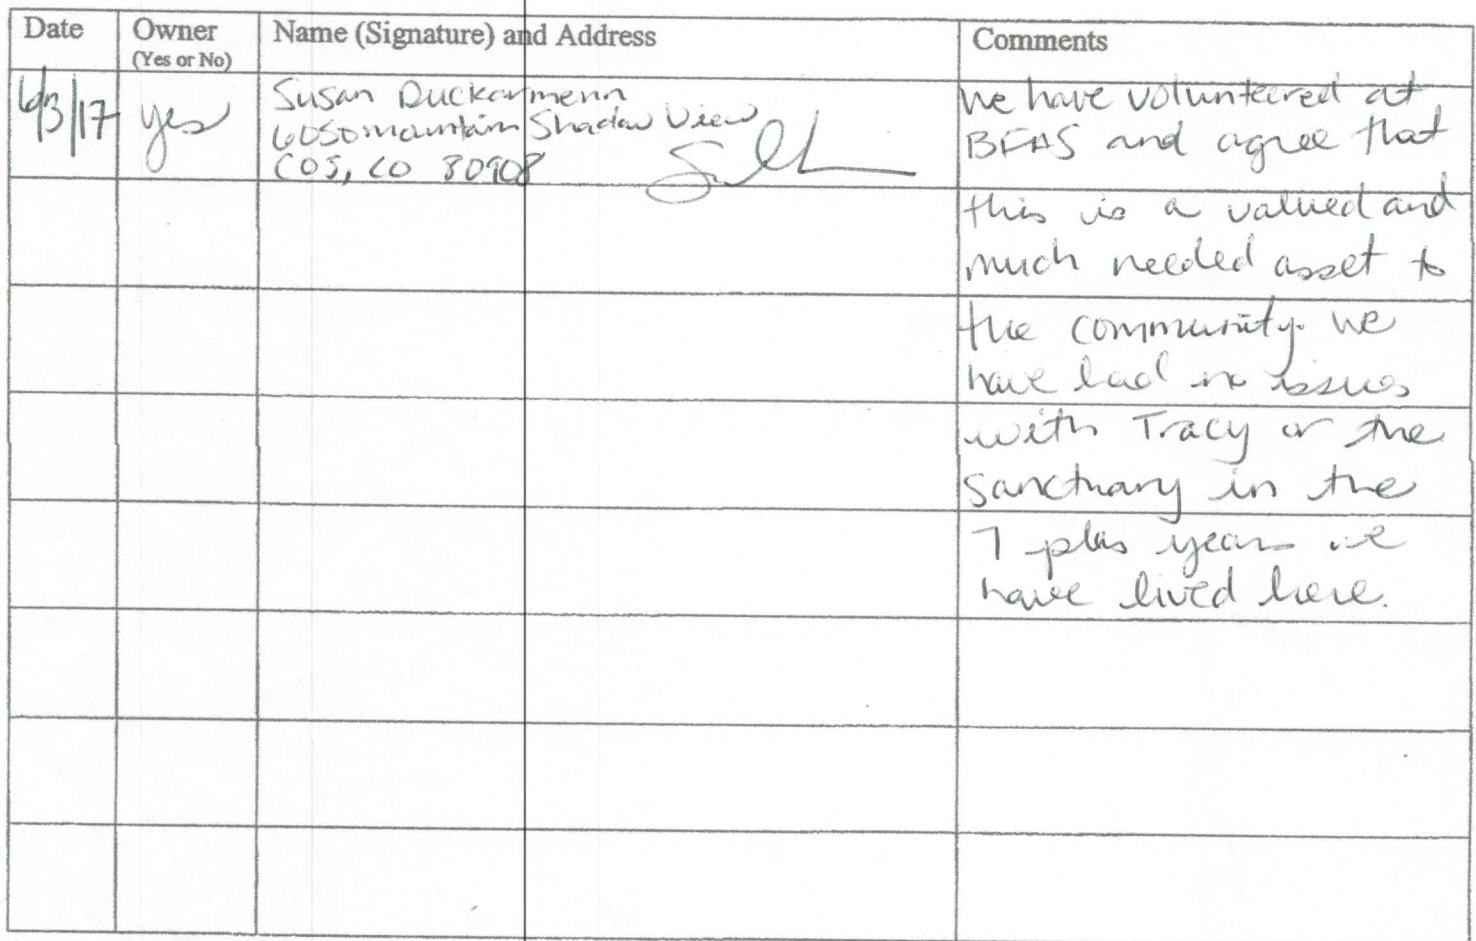 Date Owner Name (Signature) and Address Comments
(Yes or No)
6/3/17 yes Susan Duckarmenn
6050 mountain Shadow View
COS, CO 80908
we have volunteered at
BFAS and agree that
this is a valued and
much needed asset to
the community. we
have had no issues
with Tracy or the
sanctuary in the
7 plus years we
have lived here.